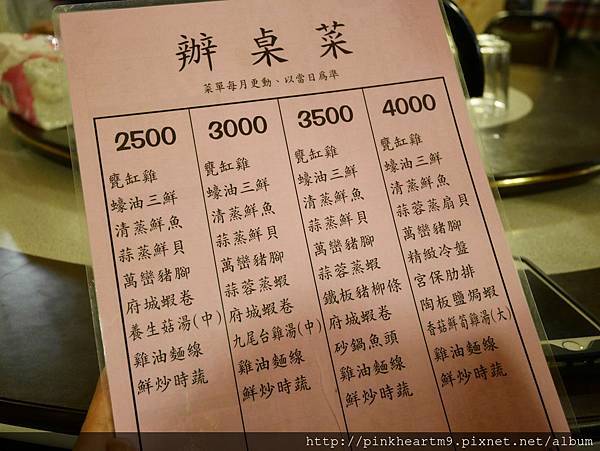 辦桌菜
菜單每月更動、以當日為準
2500
甕缸雞
蠔油三鮮
清蒸鮮魚
蒜蒸鮮貝
萬巒豬腳
府城蝦卷
養生菇湯(中)
雞油麵線
鮮炒時蔬
3000
甕缸雞
蠔油三鮮
清蒸鮮魚
蒜蒸鮮貝
萬巒豬腳
蒜蓉蒸蝦
府城蝦卷
九尾台雞湯(中)
雞油麵線
鮮炒時蔬
3500
甕缸雞
蠔油三鮮
清蒸鮮魚
蒜蒸鮮貝
萬巒豬腳
蒜蓉蒸蝦
鐵板豬柳條
府城蝦卷
砂鍋魚頭
雞油麵線
鮮炒時蔬
4000
甕缸雞
蠔油三鮮
清蒸鮮魚
蒜蓉蒸扇貝
萬巒豬腳
精緻冷盤
宮保肋排
陶板鹽焗蝦
香菇鮮筍雞湯(大)
雞油麵線
鮮炒時蔬
http://pinkheartm9.pixnet.net/album